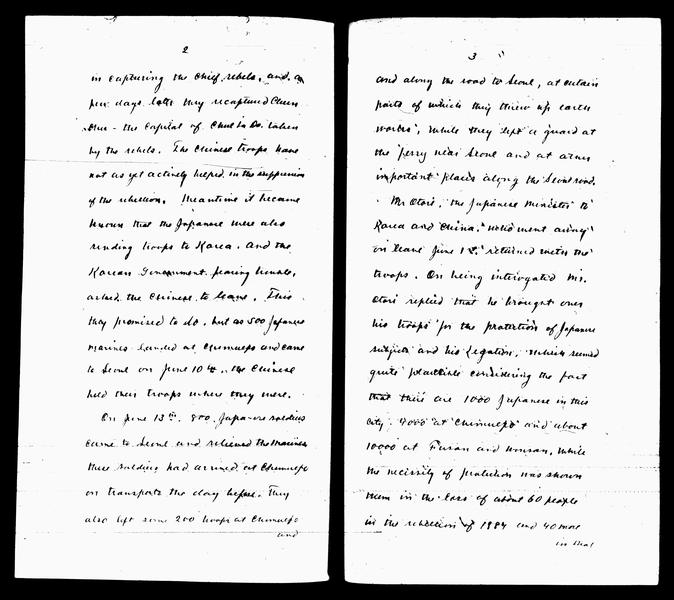 2
in capturing the chief rebels, and a
few days later they recaptured Chun
Chu - the Capital of Chul La Do. taken
by the rebels. The Chinese troops have
not as yet actively helped in the suppression
of the rebellion. Meantime it became
known that the Japanese were also
sending troops to Korea. And the
Korean Government fearing trouble,
asked the Chinese to leave. This
they promised to do, but as 500 Japanese
marines landed at Chemulpo and came
to Seoul on June 10th, the Chinese
held their troops where they were.
On June 13th. 800. Japanese soldiers
came to Seoul and relieved the Marines
these soldiers had arrived at Chemulpo
on transports the day before. They
also left some 200 troops at Chemulpo
and
3
and along the road to Seoul, at certain
parts of which they threw up earth
works, while they left a guard at
the ferry near Seoul and at other
important places along the Seoul road.
Mr. Otori, the Japanese Minister to
Korea and China, who went away
on leave June 1st. returned with the
troops. On being interrogated Mr.
Otori replied that he brought over
his troops for the protection of Japanese
subjects and his Legation, which seemed
quite plausible considering the fact
that there are 1000 Japanese in this
city. 4000 at Chemulpo and about
10000 at Fusan and Wonsan, while
the necessity of protection was shown
them in the loss of about 60 people
in the rebellion of 1884 and 40 more
in that